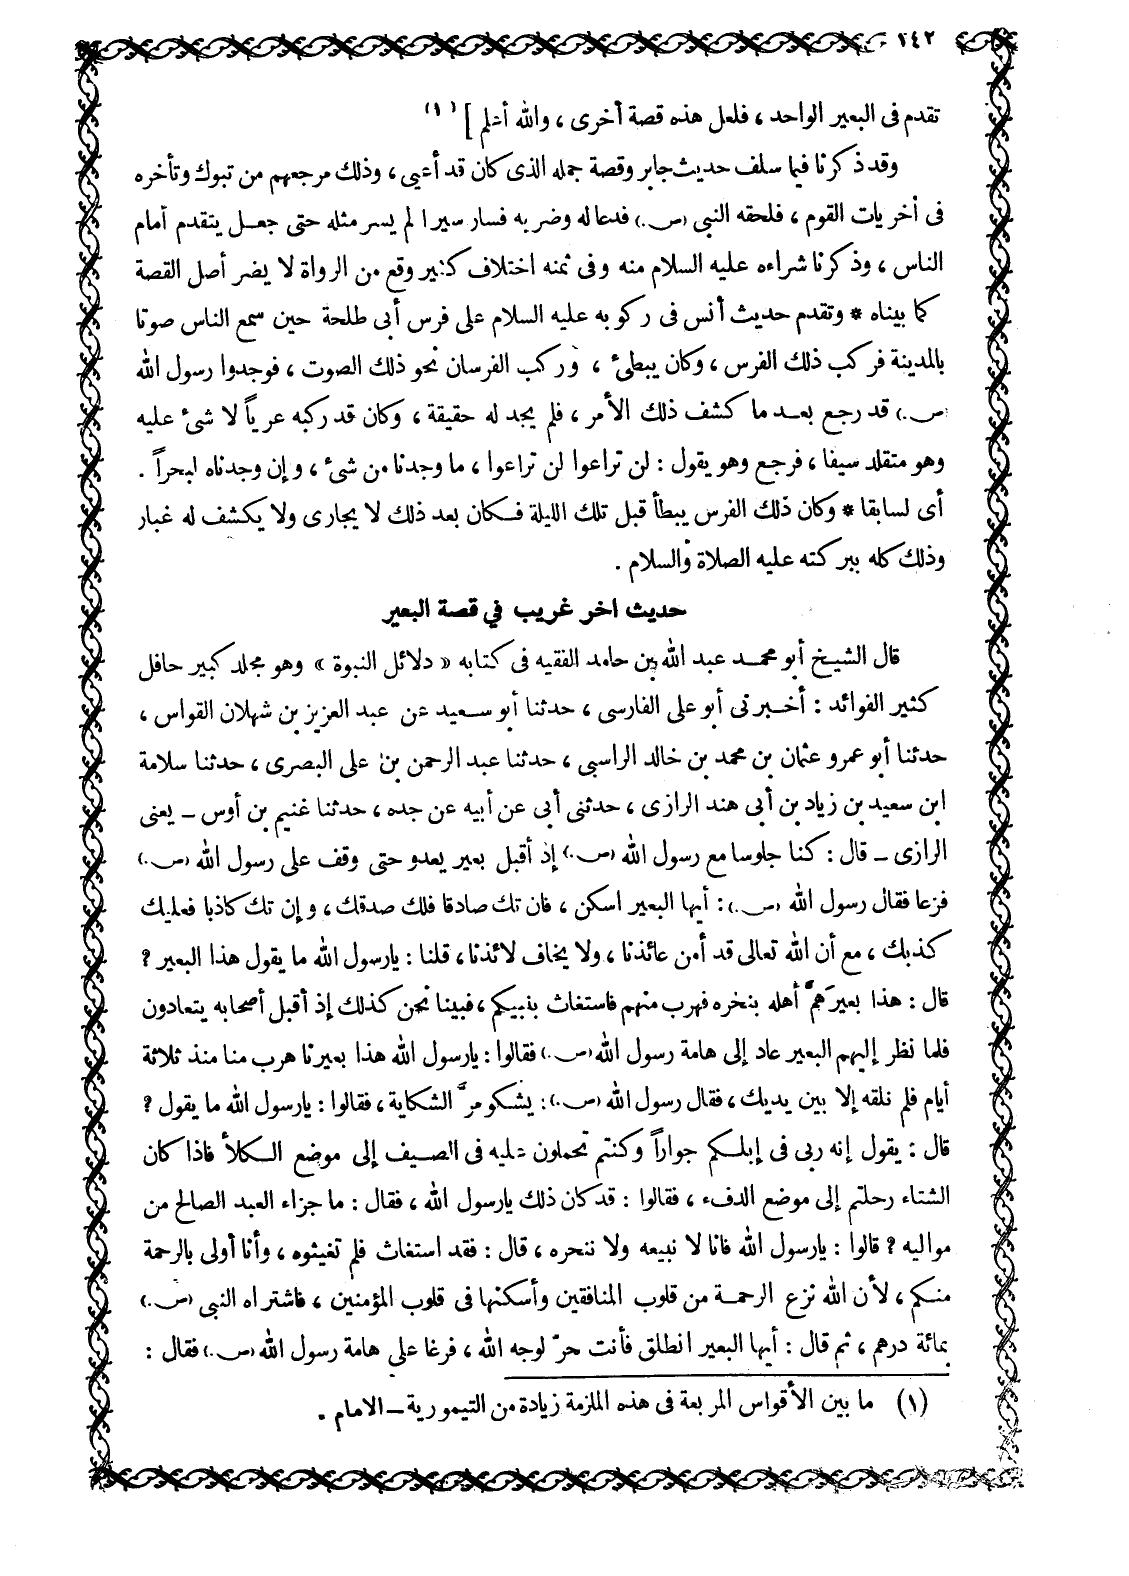 ١٤٢
تقدم فى البعير الواحد ، فلعل هذه قصة أخرى ، والله أعلم ] (١)
وقد ذكرنا فيما سلف حديث جابر وقصة جمله الذى كان قد أعيى ، وذلك مرجعهم من تبوك وتأخره
فى أخريات القوم ، فلحقه النبي (ص.) فدعا له وضربه فسار سيرا لم يسر مثله حتى جعل يتقدم أمام
الناس ، وذكرنا شراءه عليه السلام منه وفى ثمنه اختلاف كثير وقع من الرواة لا يضر أصل القصة
كما بيناه * وتقدم حديث أنس فى ركوبه عليه السلام على فرس أبى طلحة حين سمع الناس صوتا
بالمدينة فركب ذلك الفرس ، وكان يبطئ ، وركب الفرسان نحو ذلك الصوت ، فوجدوا رسول الله
(ص.) قد رجع بعد ما كشف ذلك الأمر ، فلم يجد له حقيقة ، وكان قد ركبه عرياً لا شئ عليه
وهو متقلد سيفا ، فرجع وهو يقول : لن تراعوا لن تراعوا ، ما وجدنا من شئ ، وإن وجدناه لبحراً .
أى لسابقا * وكان ذلك الفرس يبطأ قبل تلك الليلة فكان بعد ذلك لا يجارى ولا يكشف له غبار
وذلك كله ببركته عليه الصلاة والسلام .
حديث اخر غريب في قصة البعير
قال الشيخ أبو محمد عبد الله بن حامد الفقيه فى كتابه « دلائل النبوة » وهو مجلد كبير حافل
كثير الفوائد : أخبرنى أبو على الفارسى ، حدثنا أبو سعيد عن عبد العزيز بن شهلان القواس ،
حدثنا أبو عمرو عثمان بن محمد بن خالد الراسبى ، حدثنا عبد الرحمن بن على البصرى ، حدثنا سلامة
ابن سعيد بن زياد بن أبى هند الرازى ، حدثنى أبى عن أبيه عن جده ، حدثنا غنيم بن أوس - يعنى
الرازى - قال : كنا جلوسا مع رسول الله (ص.) إذ أقبل بعير يعدو حتى وقف على رسول الله (ص.)
فزعا فقال رسول الله (ص.) : أيها البعير اسكن ، فان تك صادقا فلك صدقك ، وإن تك كاذبا فعليك
كذبك ، مع أن الله تعالى قد أمن عائذنا ، ولا يخاف لائذنا ، قلنا : يارسول الله ما يقول هذا البعير ؟
قال : هذا بعير هَمَّ أهله بنخره فهرب منهم فاستغاث بنبيكم ، فبينا نحن كذلك إذ أقبل أصحابه يتعادون
فلما نظر إليهم البعير عاد إلى هامة رسول الله (ص.) فقالوا : يارسول الله هذا بعيرنا هرب منا منذ ثلاثة
أيام فلم نلقه إلا بين يديك ، فقال رسول الله (ص.) : يشكو مرَّ الشكاية ، فقالوا : يارسول الله ما يقول ؟
قال : يقول إنه ربى فى إبلكم جواراً وكنتم تحملون عليه فى الصيف إلى موضع الكلأ فاذا كان
الشتاء رحلتم إلى موضع الدفء ، فقالوا : قد كان ذلك يارسول الله ، فقال : ما جزاء العبد الصالح من
مواليه ؟ قالوا : يارسول الله فانا لا نبيعه ولا ننحره ، قال : فقد استغاث فلم تغيثوه ، وأنا أولى بالرحمة
منكم ، لأن الله نزع الرحمة من قلوب المنافقين وأسكنها فى قلوب المؤمنين ، فاشتراه النبى (ص.)
بمائة درهم ، ثم قال : أيها البعير انطلق فأنت حرّ لوجه الله ، فرغا على هامة رسول الله (ص.) فقال :
(١) ما بين الأقواس المربعة فى هذه الملزمة زيادة من التيمورية - الامام .